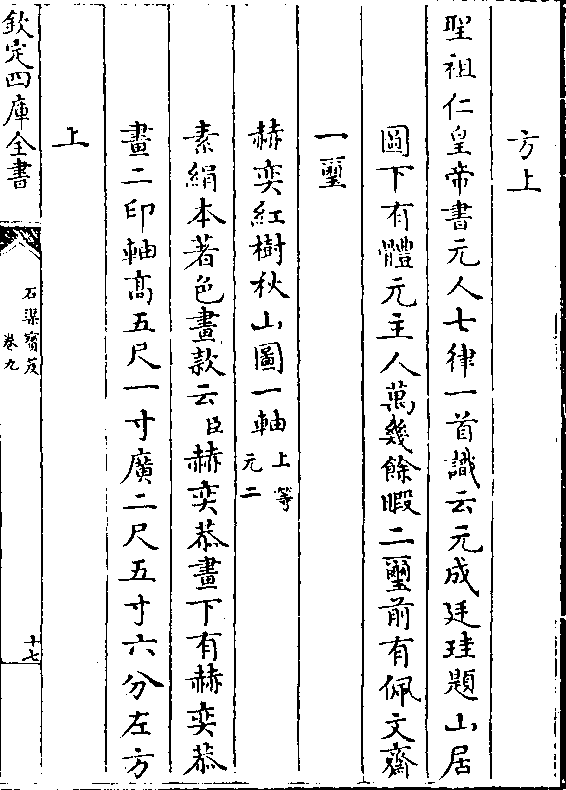 方上
聖祖仁皇帝書元人七律一首識云元成廷珪題山居
圖下有體元主人萬幾餘暇二璽前有佩文齋
一璽
赫奕紅樹秋山圖一軸上等
元二
素絹本著色畫款云臣赫奕恭畫下有赫奕恭
畫二印軸高五尺一寸廣二尺五寸六分左方
上
欽定四庫全書
石渠寶笈
卷九
十七